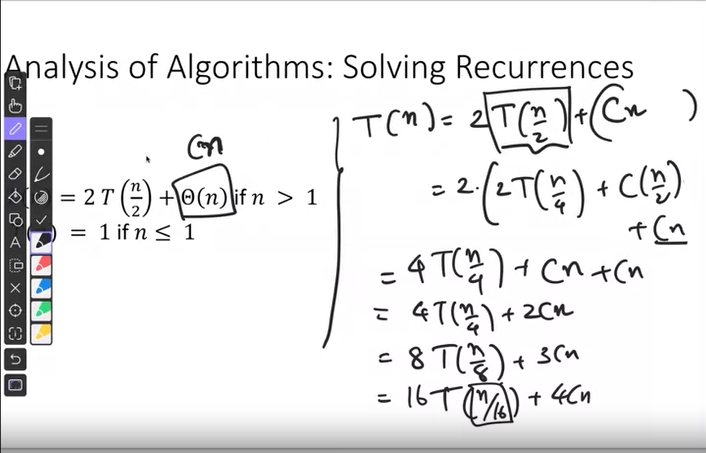 Analysis of Algorithms: Solving Recurrences
Cn
= 2 T (n/2) + Θ(n) if n > 1
= 1 if n ≤ 1
T(n) = 2 T(n/2) + (Cn )
= 2.(2T(n/4) + C(n/2)
+ Cn
= 4T(n/4) + Cn + Cn
= 4T(n/4) + 2Cn
= 8T(n/8) + 3Cn
= 16T(n/16) + 4Cn
A